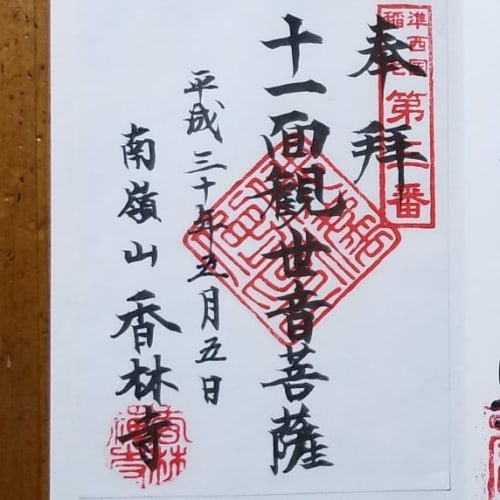 奉拜
準西国
稲毛
第三番
十一面観世音菩薩
平成三十年五月五日
南嶺山香林寺
香林禅寺